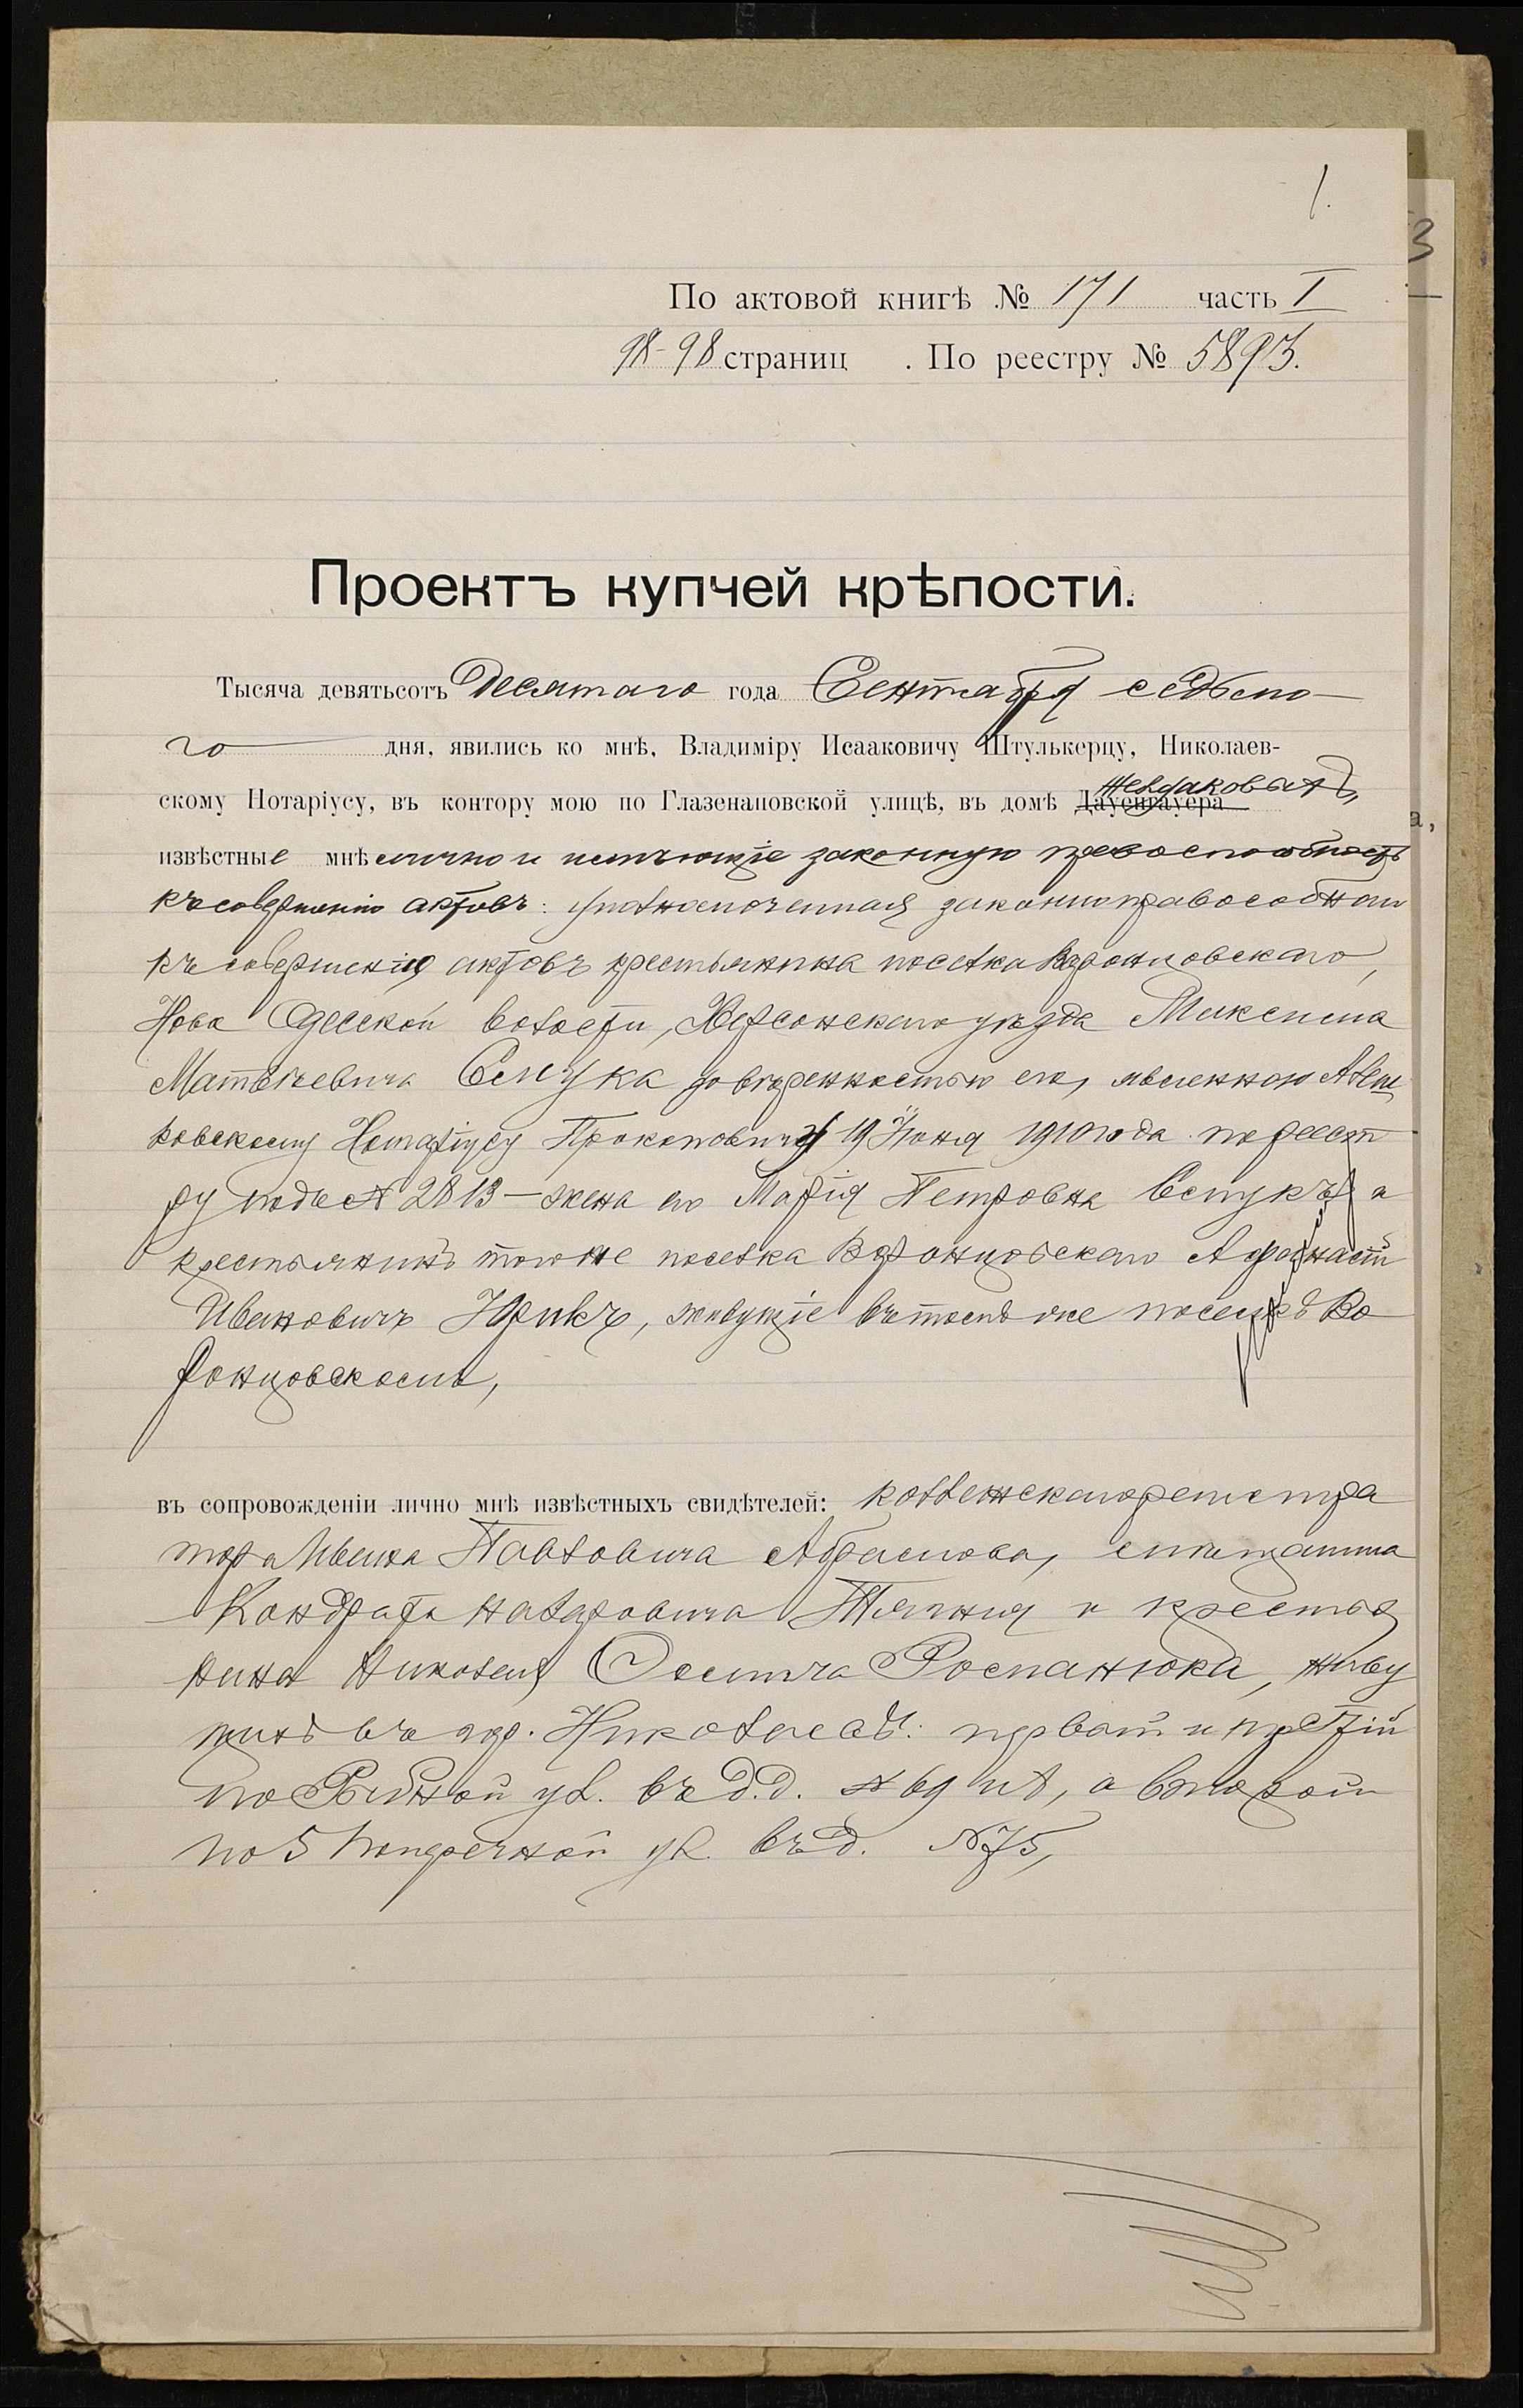 1.
3
По актовой книгѣ № 171 часть I
98-98 страниц . По реестру № 5893.
Проектъ купчей крѣпости.
Тысяча девятьсотъ Десятаго года Сентября седьмо-
го дня, явились ко мнѣ, Владиміру Исааковичу Штулькерцу, Николаев-
Жевдаковыхъ,
скому Нотаріусу, въ контору мою по Глазенаповской улицѣ, въ домѣ Дауенгауера
извѣстные мнѣ лично и имѣющіе законную правоспособность
къ совершенію актовъ: уполномоченная законноправособнаго
къ совершенію актовъ крестьянина поселка Воронцовскаго,
Ново Одесской волости, Херсонскаго уѣзда Максима
Матвѣевича довѣренностью его, явленною
Нотаріусу Прокоповичу 19 Іюня 1910 года по реест
ру подъ № 2813 – жена его Марія Петровна а
крестьянинъ того же поселка Воронцовскаго Афанасій
Ивановичъ Юрикъ, живущіе въ томъ же поселкѣ Во
ронцовскомъ,
въ сопровожденіи лично мнѣ извѣстныхъ свидѣтелей: коллежскаго регистра
тора Ивана Павловича Абрамова, мѣщанина
Кондрата Назаровича и крестья
нина Николая Осипа Романюка, живу
щихъ въ гор. Николаевѣ: первый и третій
по Рыбной ул. въ д.д. № 69 и 8, а второй
по 5 Поперечной ул. въ д. № 75,